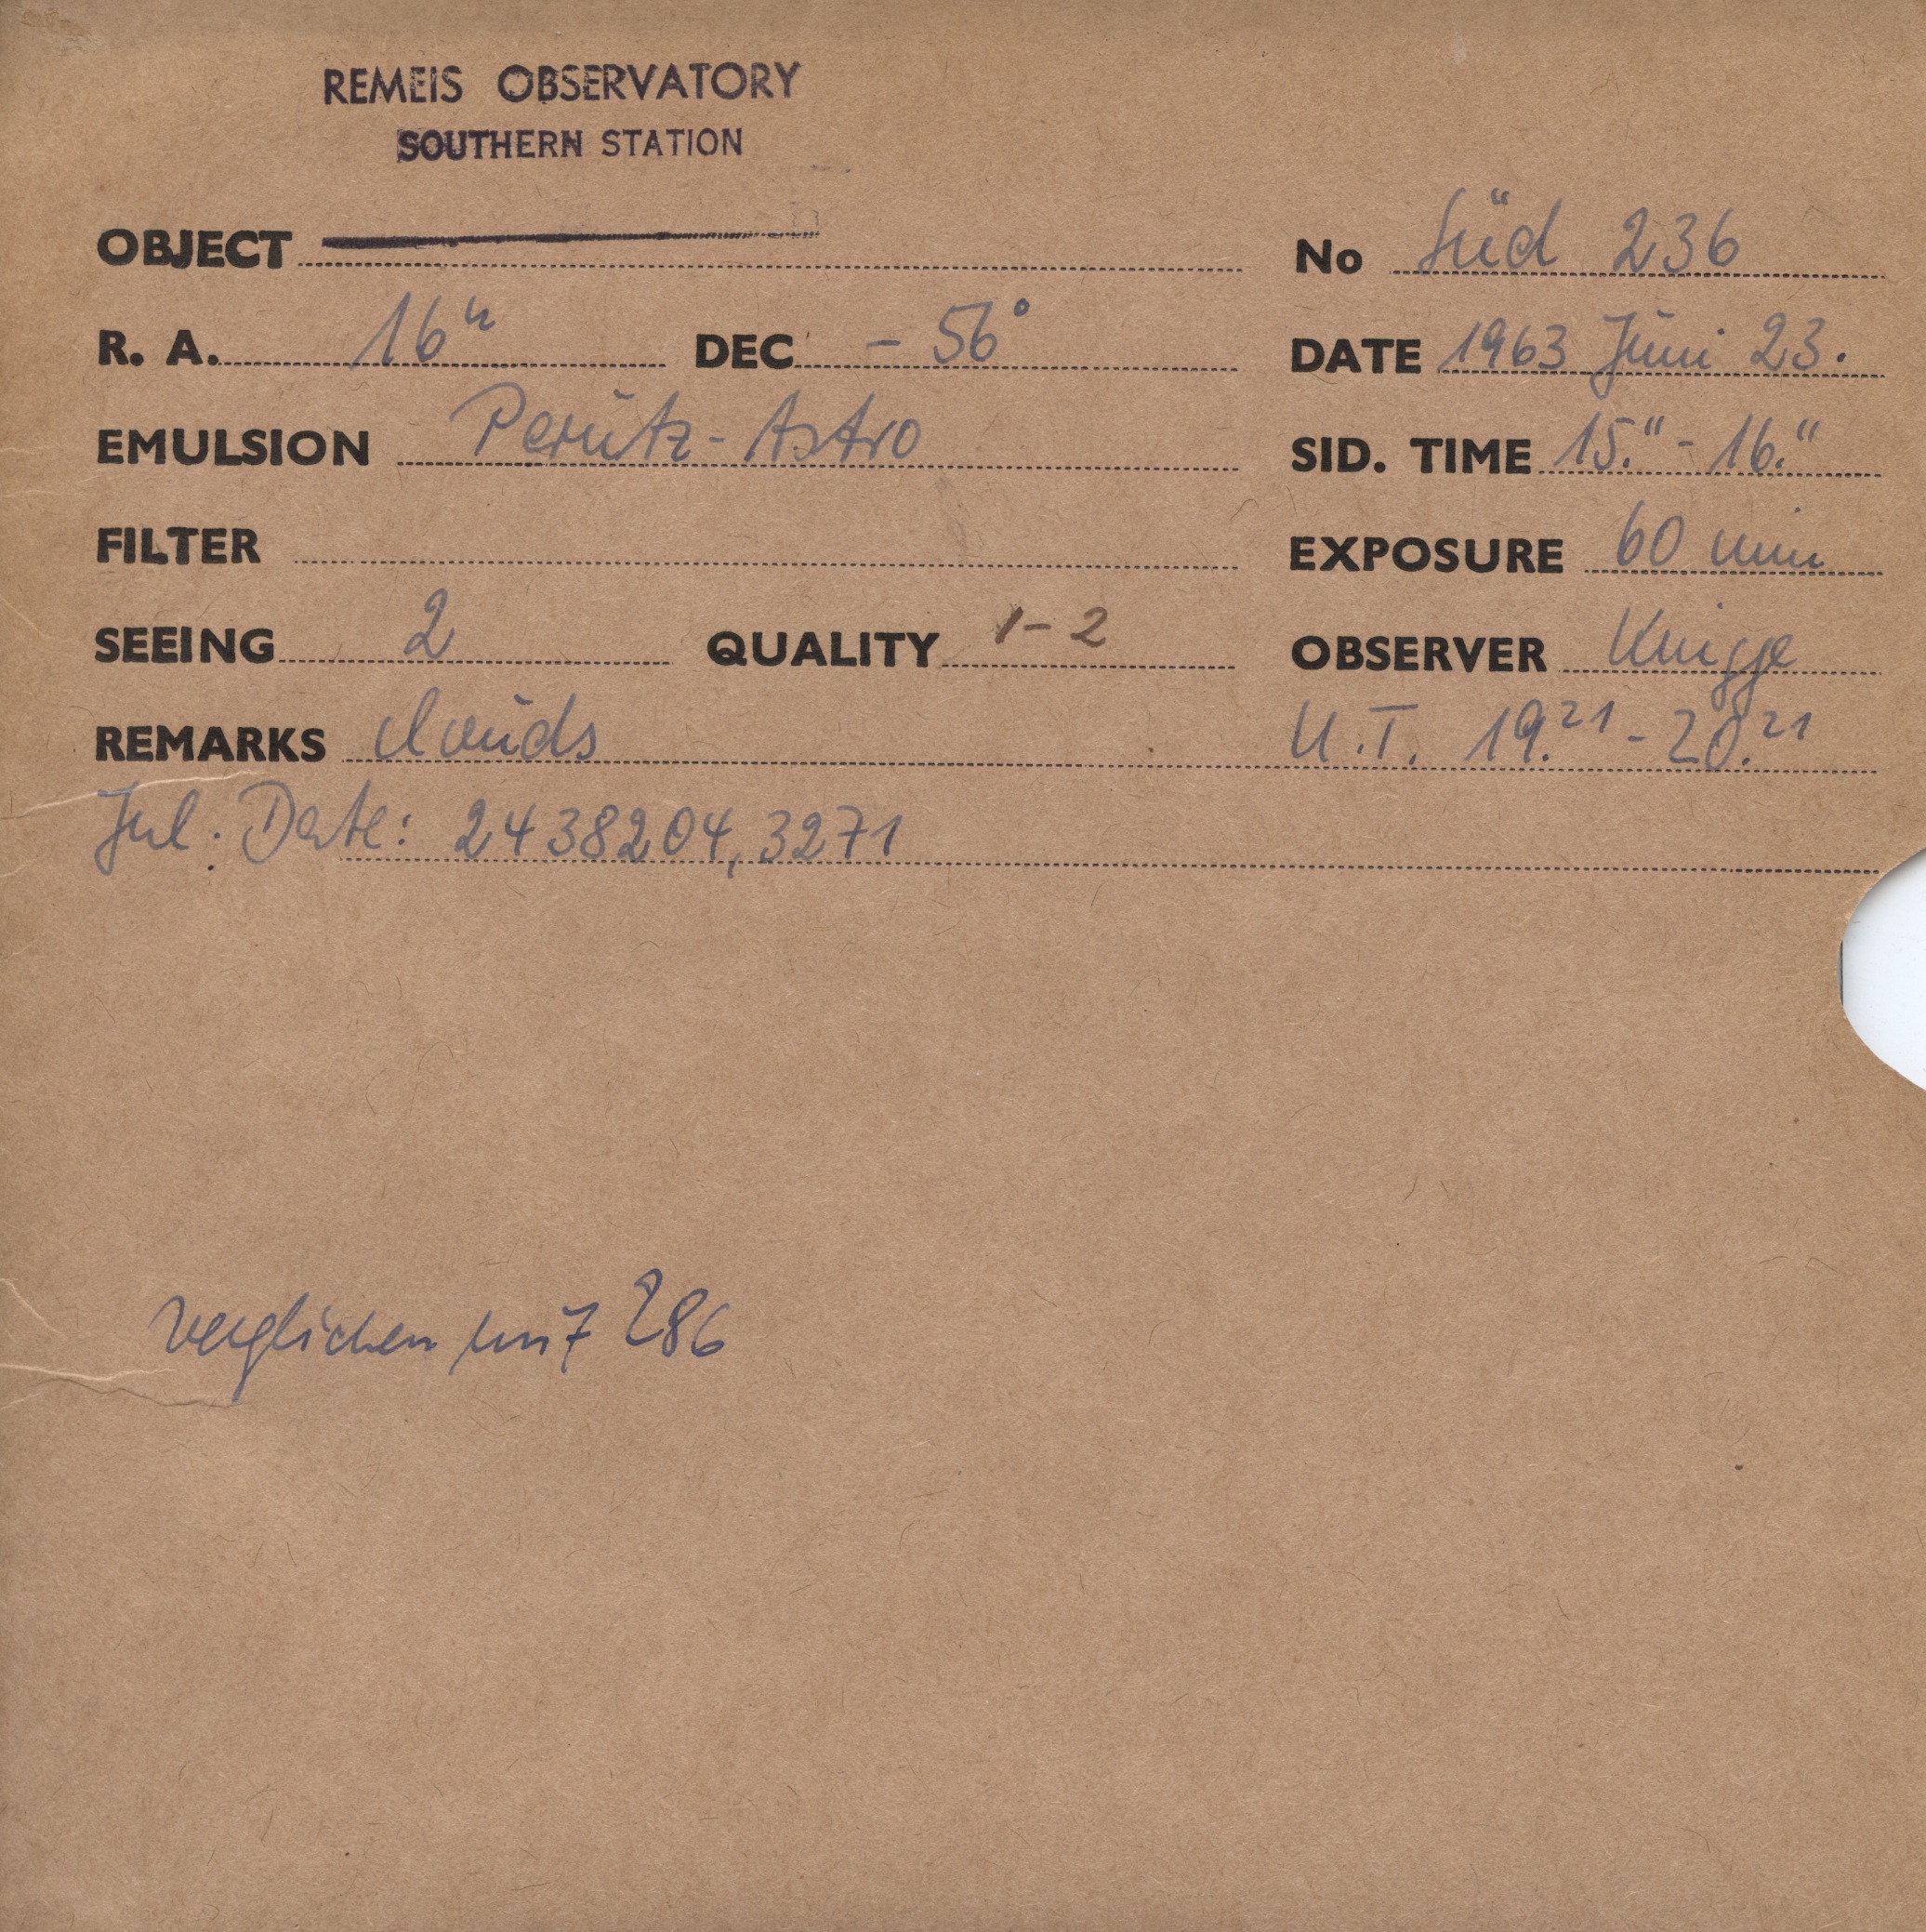 REMEIS OBSERVATORY
SOUTHERN STATION
OBJECT No Süd 236
R. A. 16h DEC - 56° DATE 1963 Juni 23.
EMULSION Perutz - Astro SID. TIME 15.11 - 16.11
FILTER EXPOSURE 60 min
SEEING 2 QUALITY 1-2 OBSERVER Knigge
REMARKS clouds U.T. 19.21 - 20.21
Jul. Date: 2438204,3271
verglichen mit 286